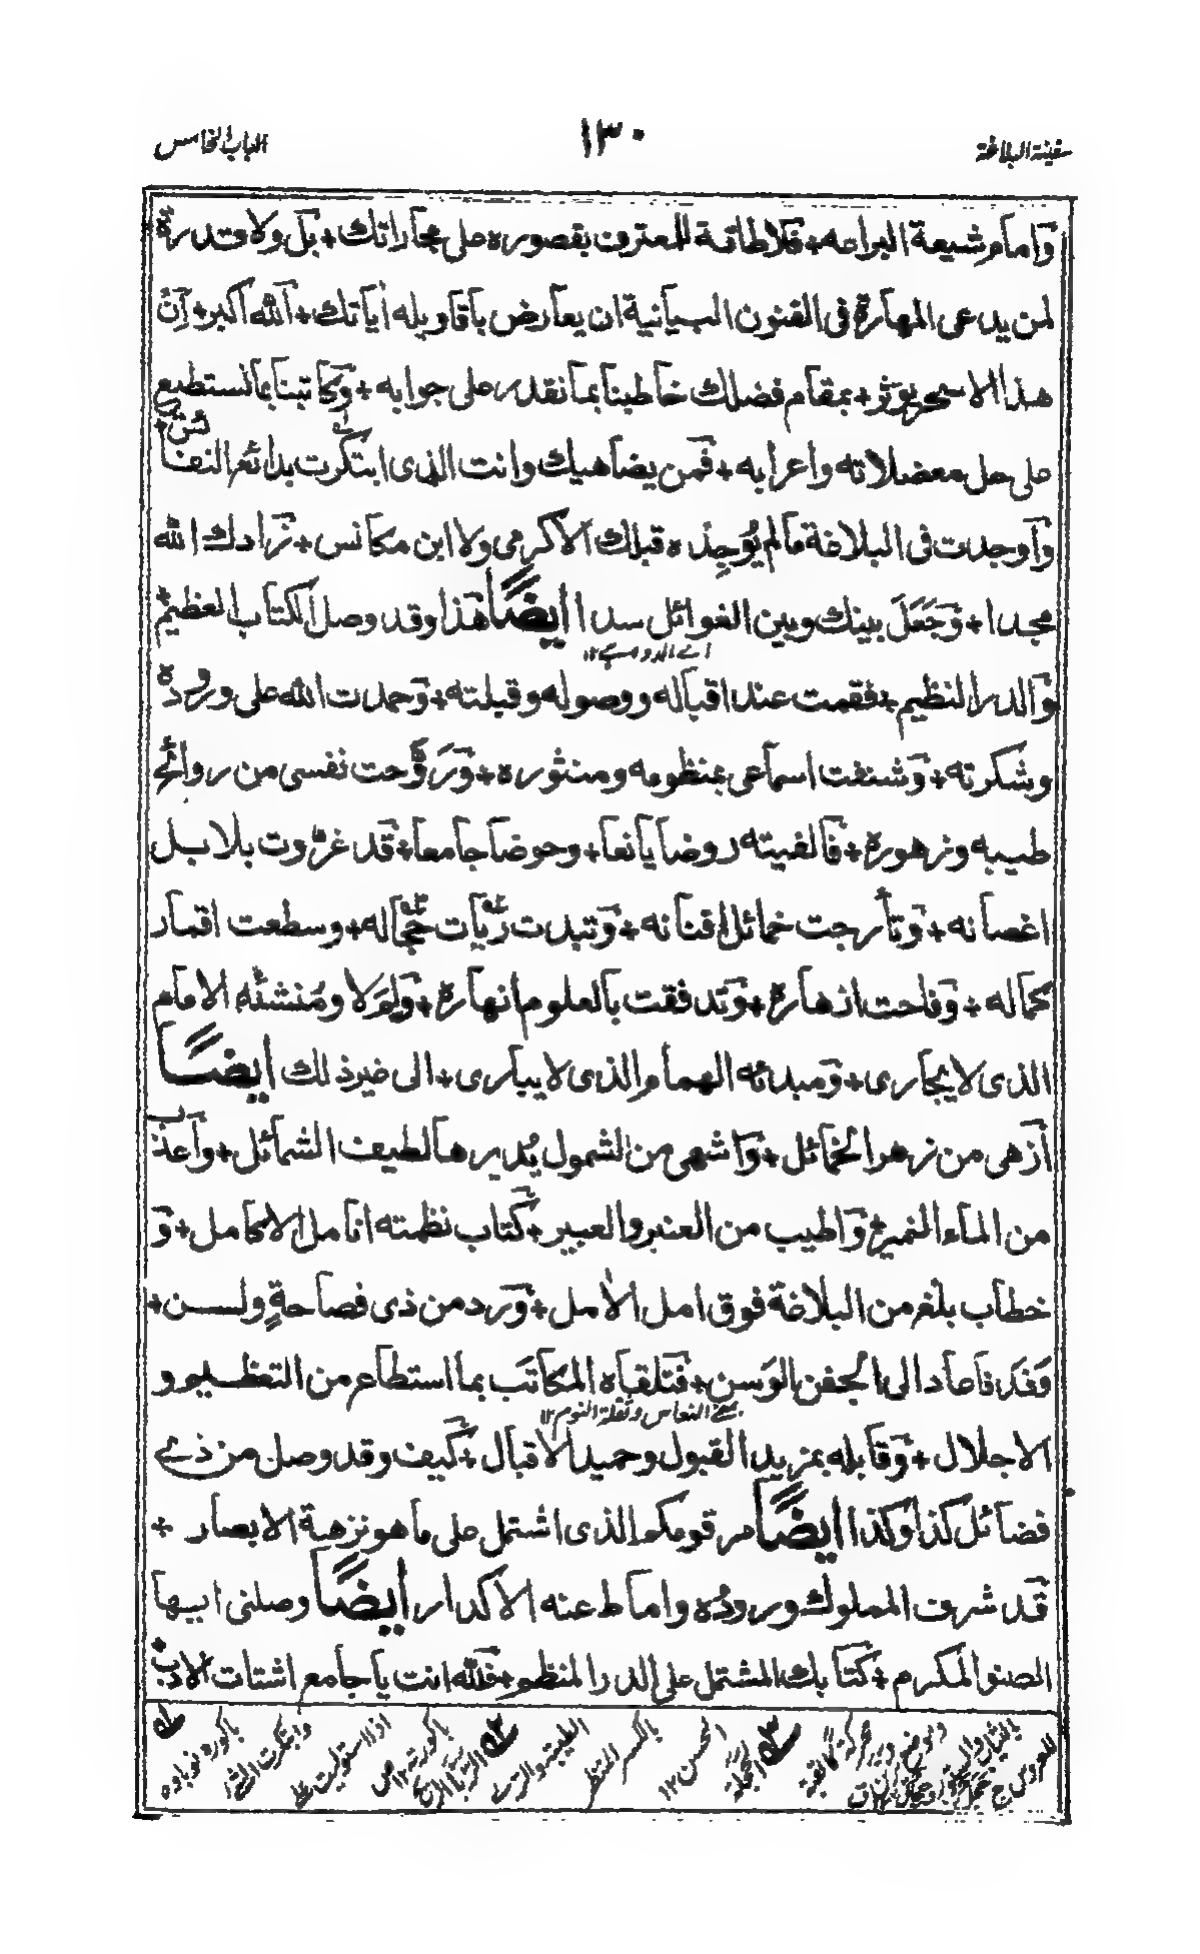 سفينة البلاغة ١٣٠ الباب الخامس
وَامام شيعة البراعه + فلاطاقة للمعترف بقصوره على مجاراتك + بل ولا قدرة
لمن يدعى المهارة فى الفنون البيانية ان يعارض باقاويله اياتك + الله اكبر + اِنْ
هذا الا سحر يؤثر + بمقام فضلك خاطبنا بما نقدر على جوابه + وكاتبنا بما نستطيع
على حل معضلاته واعرابه + فمن يضاهيك وانت الذى ابتكرت بدائع النفائس +
وَاوجدت فى البلاغة مالم يُوجِدْه قبلك الاكرمى ولا ابن مكانس + زادك الله
مجدا + وَجَعَلَ بينك وبين الغوائل سدا ايضًا هذا وقد وصل الكتاب العظيم +
وَالدر النظيم + فقمت عند اقباله ووصوله وقبلته + وَحمدت الله على وروده
وشكرته + وَشنفت اسماعى بمنظومه ومنثوره + وَرَوَّحت نفسى من روائح
طيبه وزهوره + فالفيته روضا يانعا + وحوضا جامعا + قد غرّدت بلابل
اغصانه + وَتأرجت خمائل افنانه + وَتبدت ربّات حجاله + وسطعت اقمار
كماله + وَفاحت ازهاره + وَتدفقت بالعلوم انهاره + وَلِمَ لا ومُنشئه الامام
الذى لا يجارى + وَمبدئه الهمام الذى لا يبارى + الى غير ذلك ايضًا
أزهى من زهر الخمائل + وَاشهى من الشمول يُديرها لطيف الشمائل + وَاعذب
من الماء النمير + وَاطيب من العنبر والعبير + كتاب نظمته انامل الاكامل + وَ
خطاب بلغ من البلاغة فوق امل الاٰمل + وَرد من ذى فصاحةٍ ولسن +
وَفكرٍ اعاد الى الجفن الوَسن + فتلقاه المكاتَب بما استطاع من التعظيم و
الاجلال + وَقابله بمزيد القبول وحميد الاقبال + كيف وقد وصل من ذے
فضائل كذا وكذا ايضًا مرقومكم الذى اشتمل على ما هو نزهة الابصار +
قد شرف المملوك وروده واماط عنه الاكدار ايضًا وصلنى ايها
الصنو المكرم + كتابك المشتمل على الدر المنظم + فلله انت يا جامع اشتات الادب +